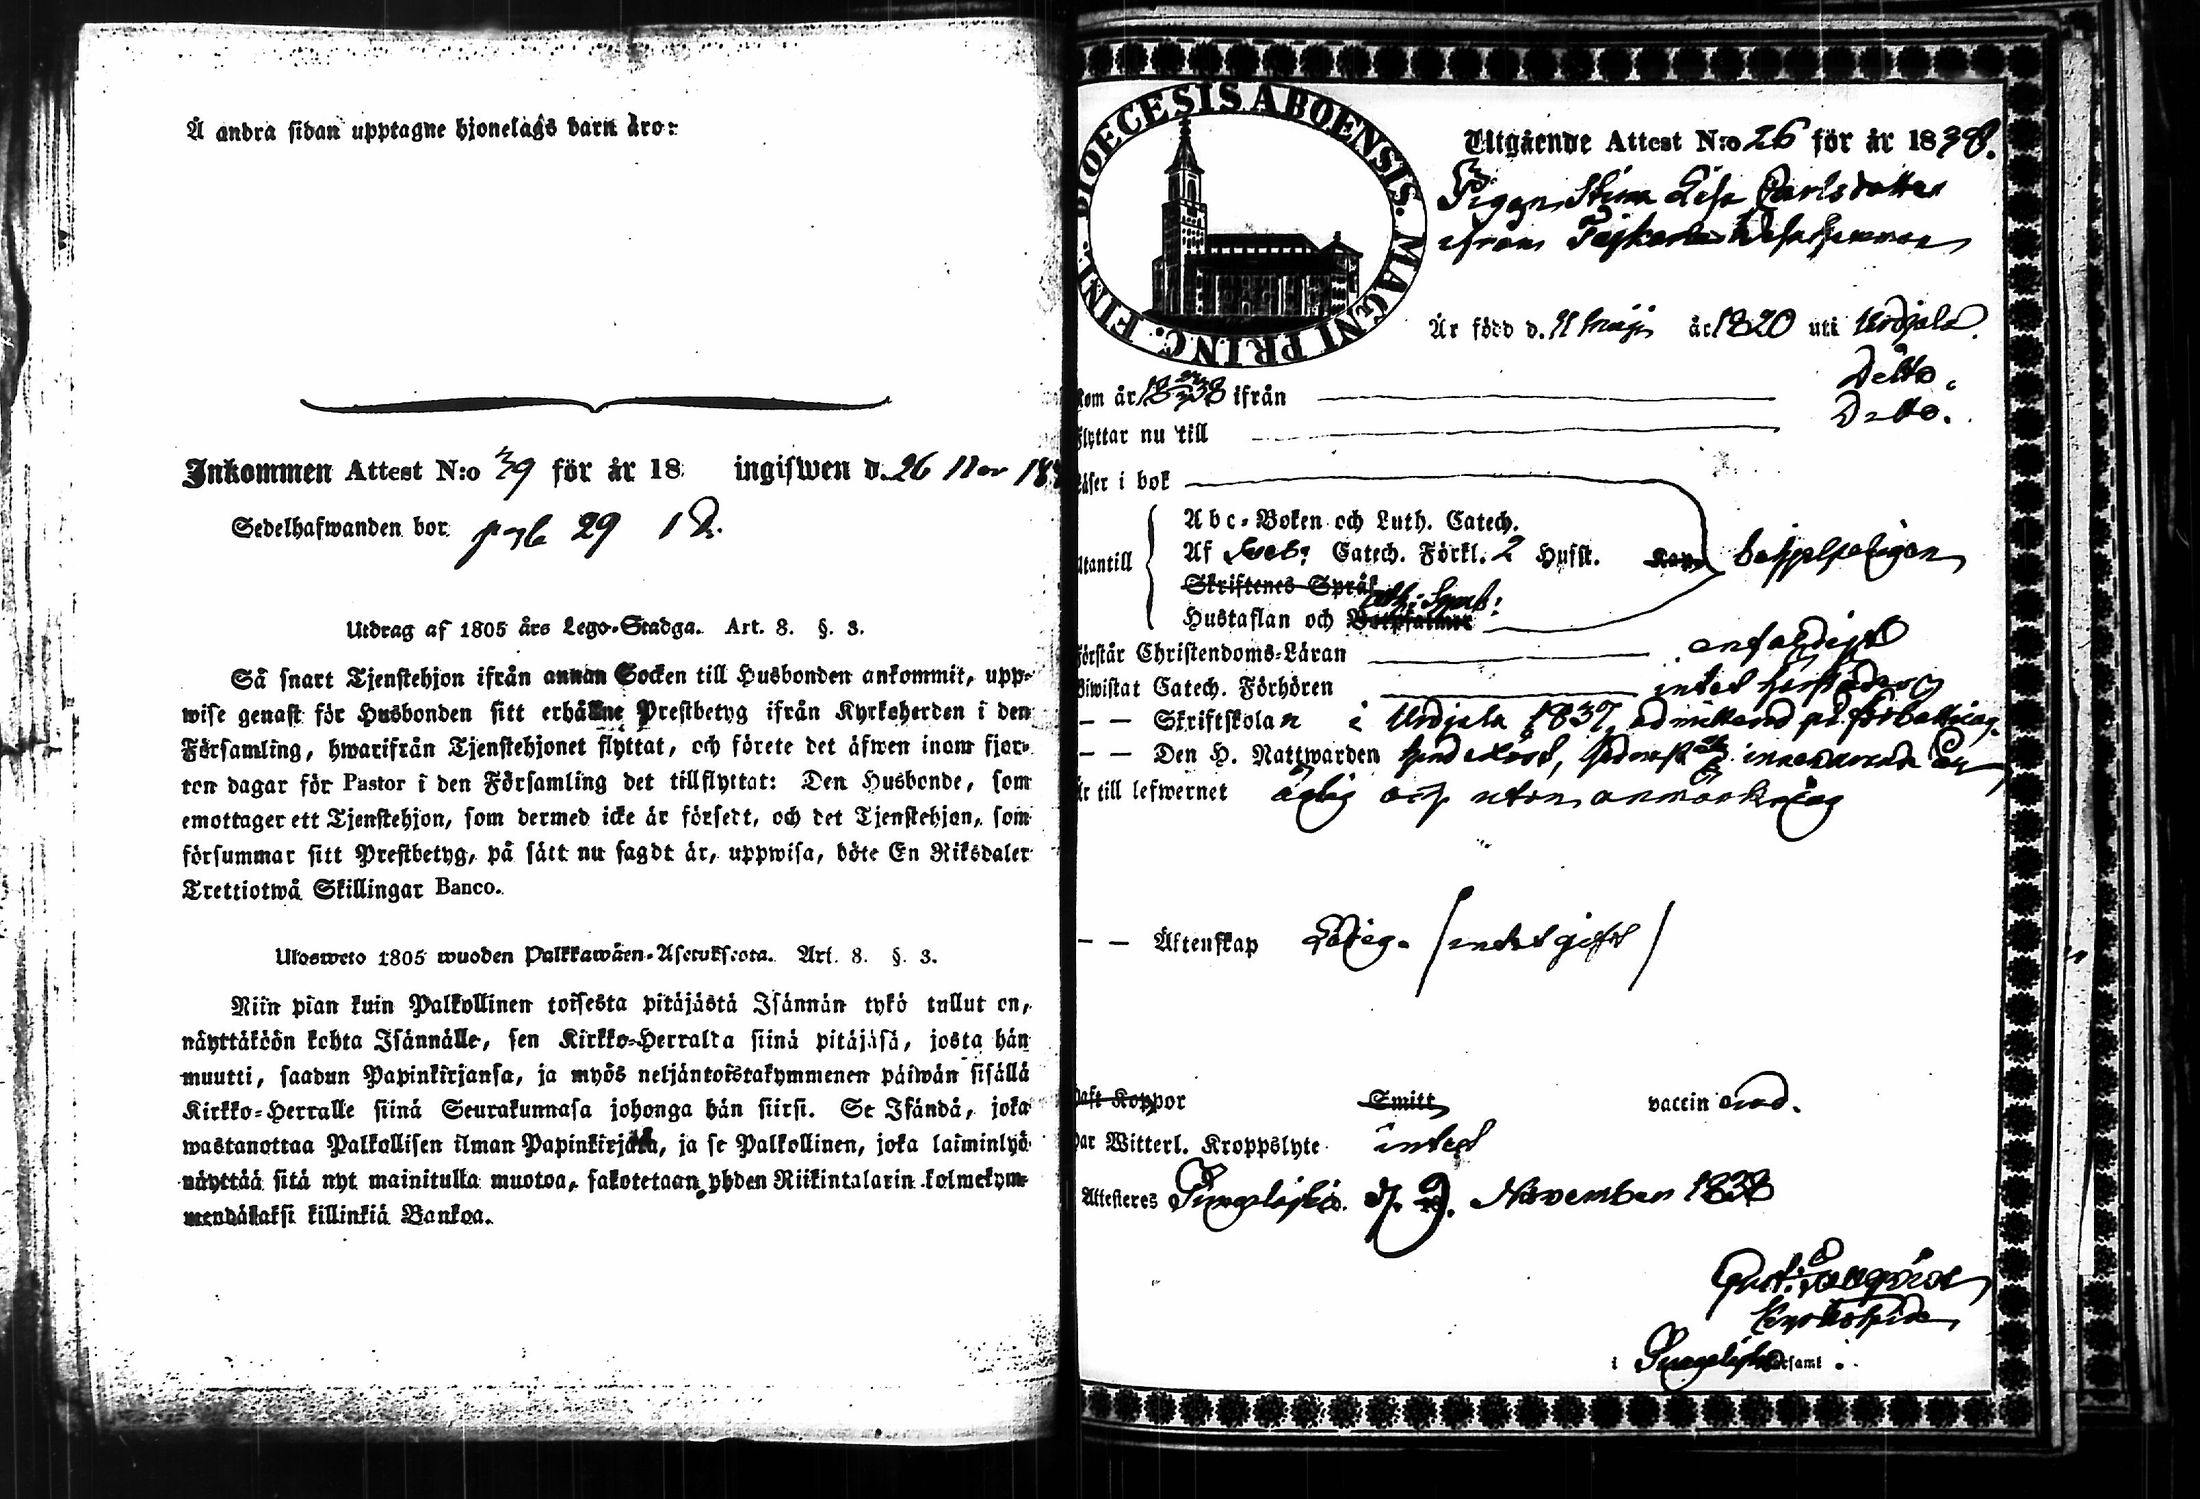 Å andra sidan upptagne hjonelags barn äro:
Inkommen Attest N:o 39 för år 18 ingifwen d. 26 Nov 18
Sedelhafwanden bor pag 29
Utdrag af 1805 års Lego-Stadga. Art. 8. §. 3.
Så snart Tjenstehjon ifrån annan Socken till Husbonden ankommit, upp-
wise genast för Husbonden sitt erhållne Prestbetyg ifrån Kyrkoherden i den
Församling, hwarifrån Tjenstehjonet flyttat, och förete det äfwen inom fjor-
ton dagar för Pastor i den Församling det tillflyttat: Den Husbonde, som
emottager ett Tjenstehjon, som dermed icke är försedt, och det Tjenstehjon, som
försummar sitt Prestbetyg, på sätt nu sagdt är, uppwisa, böte En Riksdaler
Trettiotwå Skillingar Banco.
Ulosweto 1805 wuoden Palkkawäen-Asetuksesta. Art. 8. §. 3.
Niin pian kuin Palkollinen toisesta pitäjästä Isännän tykö tullut on,
näyttäköön kohta Isännälle, sen Kirkko-Herralta siinä pitäjäsä, josta hän
muutti, saadun Papinkirjansa, ja myös neljäntoistakymmenen päiwän sisällä
Kirkko-Herralle siinä Seurakunnasa johonga hän siirsi. Se Isändä, joka
wastanottaa Palkollisen ilman Papinkirjata, ja se Palkollinen, joka laiminlyö
näyttää sitä nyt mainitulla muotoa, sakotetaan yhden Riikintalarin kolmekym-
mendäkaksi killinkiä Bankoa.
DIOECESIS ABOENSIS. MAGNI PRINC. FINL.
Utgående Attest N:o 26 för år 1838.
Pigan Stina Lisa Carlsdotter
ifrån
Är född d. 11 Maji år 1820 uti Urdjala.
Kom år 1838 ifrån Detto.
Flyttar nu till Detto.
Läser i bok
Utantill
Abc-Boken och Luth. Catech.
Af Sveb: Catech. Förkl. 2 Hufst. Kap.
Skriftenes Språk
Hustaflan och Ath: Symb:
Förstår Christendoms-Läran enfaldigt
Biwistat Catech. Förhören intet härstädes
— — Skriftskolan i Urdjala 1837, admitterad på förbättring.
— — Den H. Nattwarden
Är till lefwernet ärlig och utan anmärkning
— — Äktenskap Ledig. /intet gift/
Haft Koppor Smitt vaccinerad.
Har Witterl. Kroppslyte intet
Attesteras Pungalaitio d. 9. November 1838
Gust:
Kyrkoherde
i Pungalaitio Församl.